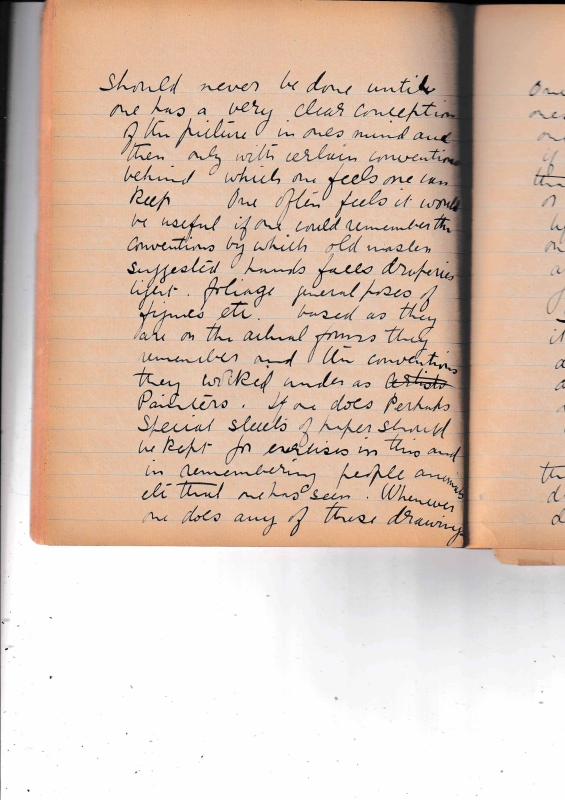 Should never be done until
one has a very clear conception
of the picture in ones mind and
then only with certain conventions
behind which one feels one can
keep One often feels it would
be useful if one could remember the
conventions by which old masters
suggested hands faces draperies
light. foliage general poses of
figures etc. based as they
are on the actual forms they
remember and the conventions
they worked under as artists
Painters. If one does Perhaps
Special sheets of paper should
be kept for exercises in this and
in remembering people animals
etc that one has seen. Whenever
one does any of these drawings